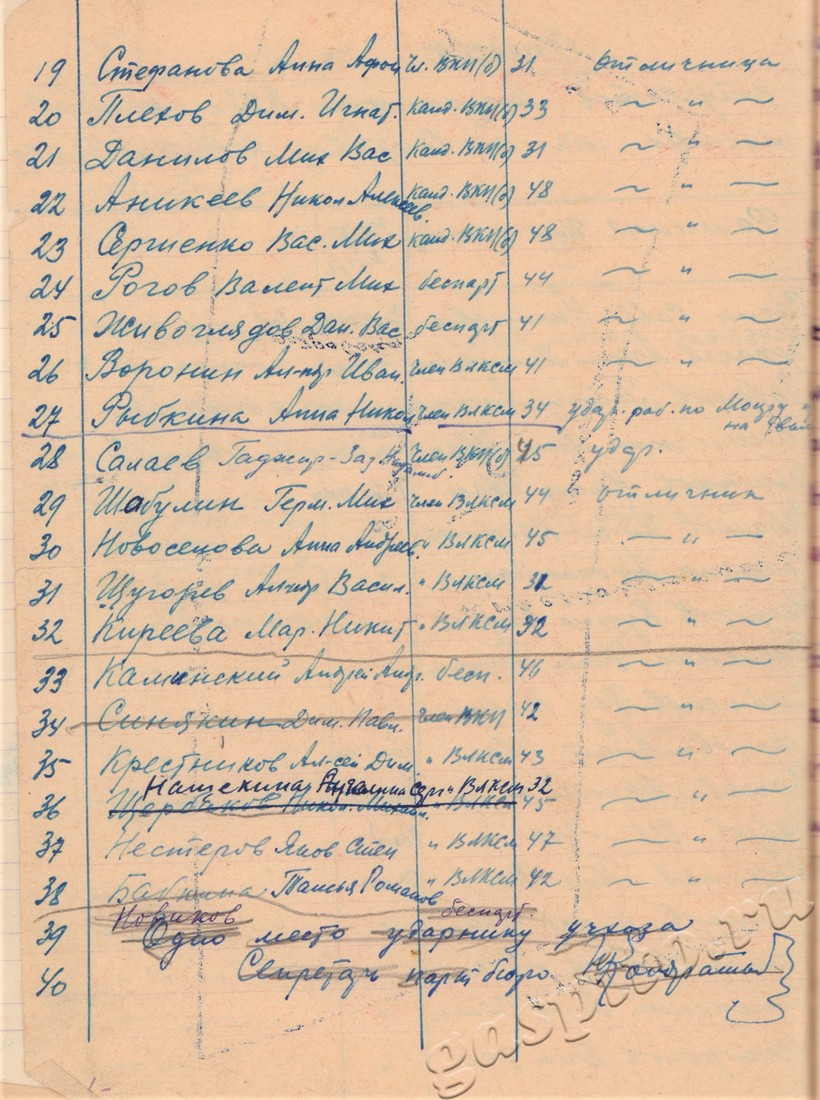 19 Стефанова Анна Афон чл. ВКП(б) 31 Отличница
20 Плехов Дим. Игнат. Канд. ВКП(б) 33 ~ " ~
21 Данилов Мих Вас Канд. ВКП(б) 31 ~ " ~
22 Аникеев Никол Алексеев. Канд. ВКП(б) 48 ~ " ~
23 Сергиенко Вас. Мих Канд. ВКП(б) 48 ~ " ~
24 Рогов Валент Мих беспарт 44 ~ " ~
25 Живоглядов Дан. Вас. беспарт 41 ~ " ~
26 Воронин Ал-ндр Иван. член ВЛКСМ 41 ~ " ~
27 Рыбкина Анна Никол член ВЛКСМ 34 удар. раб. по
на
28 Салаев член ВКП(б) 45 удар.
29 Шабулин Герм. Мих член ВЛКСМ 44 отличник
30 Новоселова Анна Андреев. " ВЛКСМ 45 — " —
31 Щугорев Ал-ндр Васил. " ВЛКСМ 32 — " —
32 Киреева Мар. Никит " ВЛКСМ 32 ~ " ~
33 Калинский Андрей Андр. бесп. 46 ~ " ~
34 Синякин Дим. Павл. член ВКП 42 ~ " ~
35 Крестников Ал-сей Дим. " ВЛКСМ 43 ~ " ~
Нащекина " ВЛКСМ 32
36 Щербаков Никол. Михаил. " ВЛКСМ 45 ~ " —
37 Нестеров Яков Степ " ВЛКСМ 47 ~ " —
38 Бабкина Таисья Романов " ВЛКСМ 42 ~ " —
Новиков беспарт.
39 Одно место ударнику учхоза
40 Секретарь парт бюро
gaspiko.ru